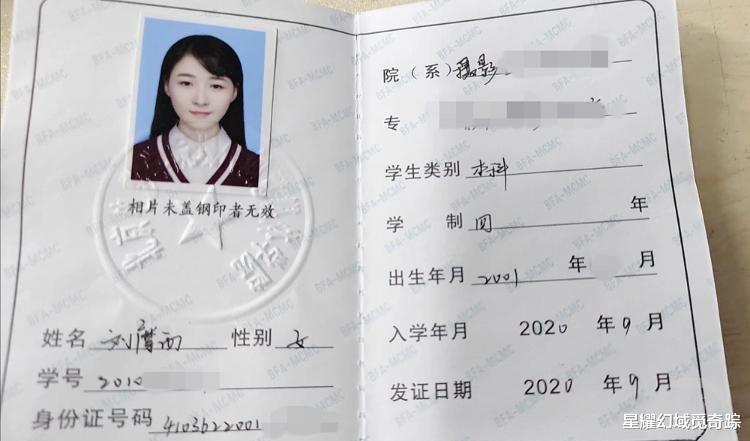 相片未盖钢印者无效
姓名 刘 西 性别 女
学号 2010
身份证号码 4103622001
院（系）摄影
专
学生类别 本科
学 制 四 年
出生年月 2001 年 月
入学年月 2020 年 9 月
发证日期 2020 年 9 月
BFA-MCMC
星耀幻域觅奇踪